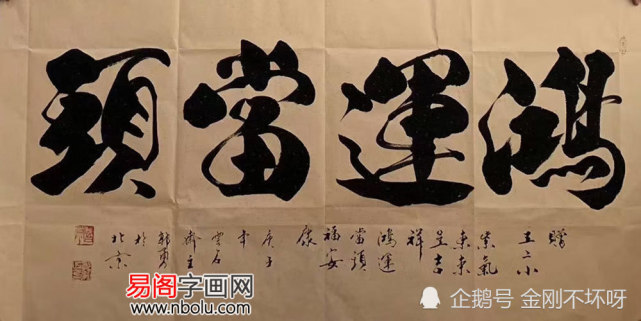 鴻運當頭
紫氣
東来
呈吉
祥
鴻運
當頭
福安
康
庚子
年
郭勇
於
北京
易阁字画网
www.nbolu.com
企鹅号 金刚不坏呀